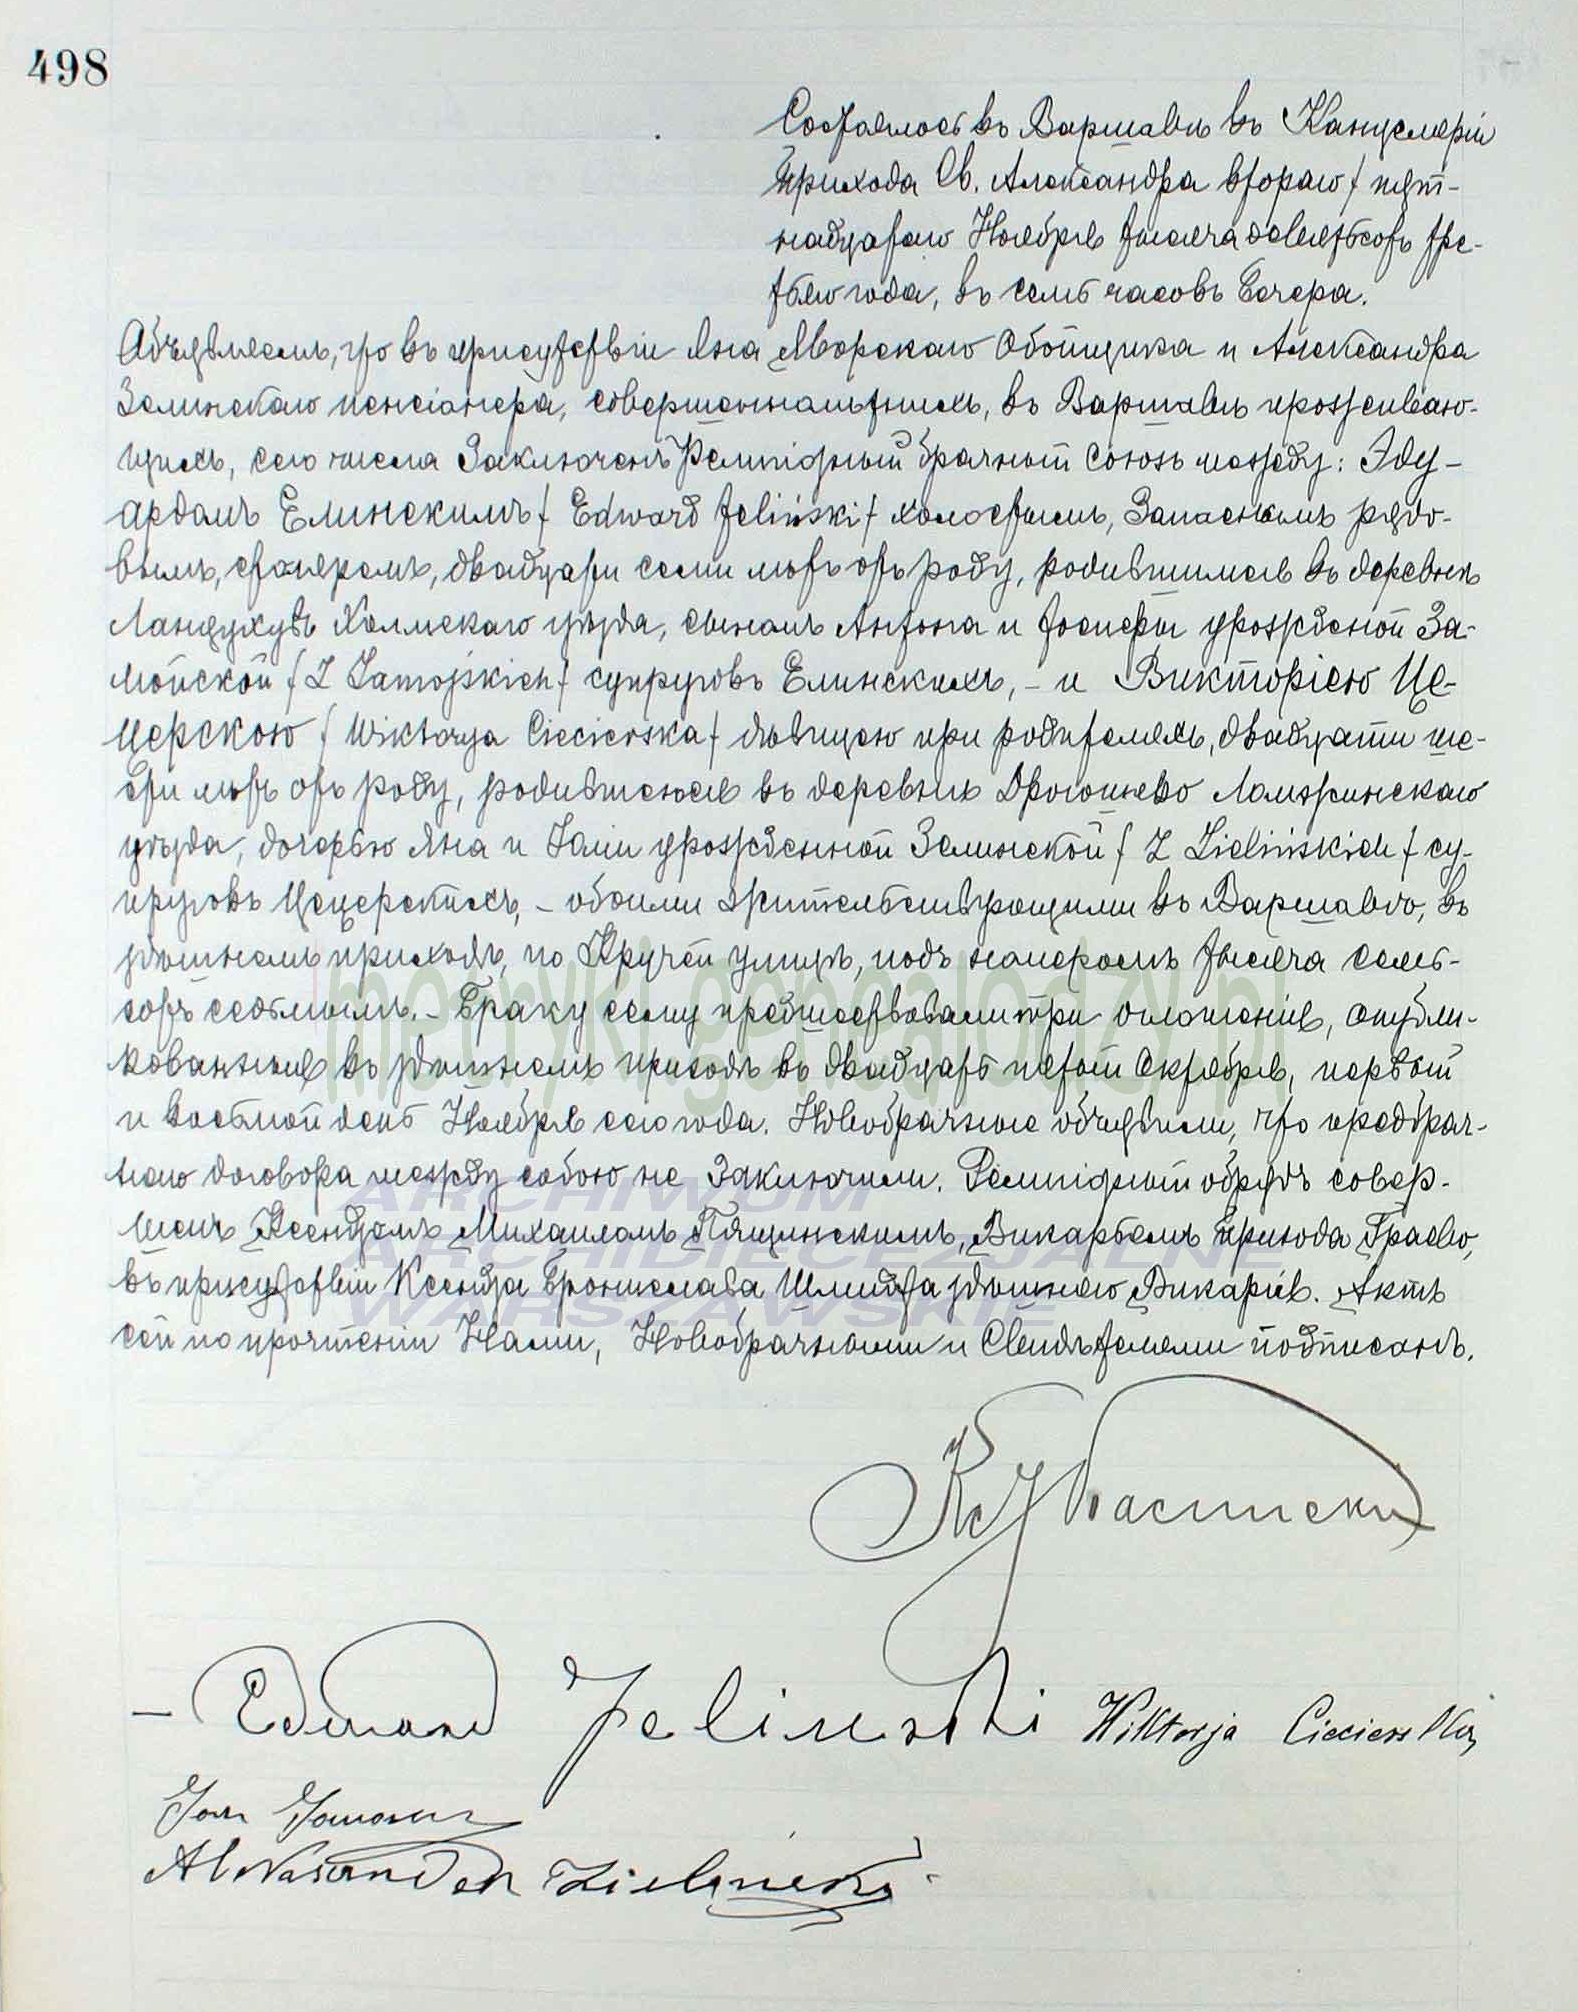 498
Состоялось въ Варшавѣ въ Канцеляріи
прихода Св. Александра втораго / пят-
надцатаго Ноября тысяча девятьсотъ тре-
тьяго года, въ семь часовъ вечера.
Объявляемъ, что въ присутствіи Яна Яворскаго Обойщика и Александра
Зелинскаго пенсіонера, совершеннолѣтнихъ, въ Варшавѣ проживаю-
щихъ, сего числа заключенъ Религіозный брачный союзъ между: Эду-
ардомъ Елинскимъ / Edward Jeliński / холостымъ, Запаснымъ рядо-
вымъ, столяромъ, двадцати семи лѣтъ отъ роду, родившимся въ деревнѣ
Ланцухувъ Холмскаго уѣзда, сыномъ Антона и Іосифы урожденой За-
мойской / Z Zamojskich / супруговъ Елинскихъ, - и Викторіею Це-
церскою / Wiktorya Ciecierska / дѣвицею при родителяхъ, двадцати ше-
сти лѣтъ отъ роду, родившеюся въ деревнѣ Дрогошево Ломжинскаго
уѣзда, дочерью Яна и урожденной Зелинской / Z Zielińskich / су-
пруговъ Цецерскихъ, - обоими жительствующими въ Варшавѣ, въ
здѣшнемъ приходѣ, по Кручей улицѣ, подъ номеромъ тысяча семь-
сотъ седьмымъ. - Браку сему предшествовали три оглашенія, опубли-
кованныя въ здѣшнемъ приходѣ въ двадцать пятый Октября, первый
и восьмой день Ноября сего года. Новобрачные объявили, что предбрач-
наго договора между собою не заключили. Религіозный обрядъ совер-
шенъ Ксендзомъ Михаиломъ Пящинскимъ, Викарьемъ прихода Граево,
въ присутствіи Ксендза Бронислава Шмидта здѣшняго Викарія. Актъ
сей по прочтеніи Нами, Новобрачными и Свидѣтелями подписанъ.
metryki.genealodzy.pl
ARCHIWUM
ARCHIDIECEZJALNE
WARSZAWSKIE
Edward Jelinski Wiktorja Ciecierska
Jan
Aleksander Zielinski